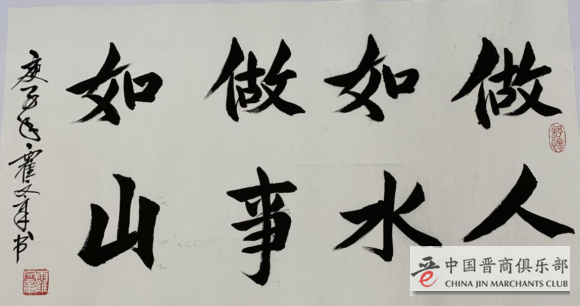 做人
如水
做事
如山
庚子年霍文年书
中国晋商俱乐部
CHINA JIN MARCHANTS CLUB